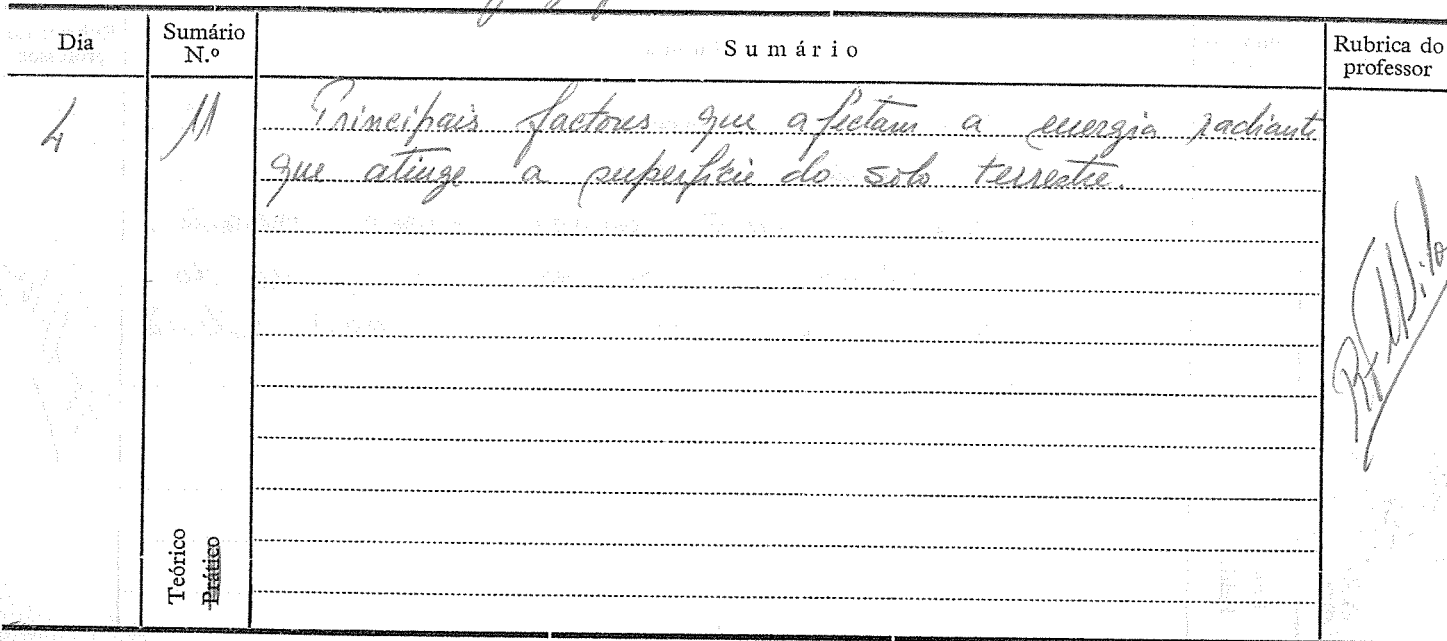 Dia
Sumário
N.º
Sumário
Rubrica do
professor
4
11
Principais factores que afectam a energia radiante
que atinge a superfície do solo terrestre.
Teórico
Prático